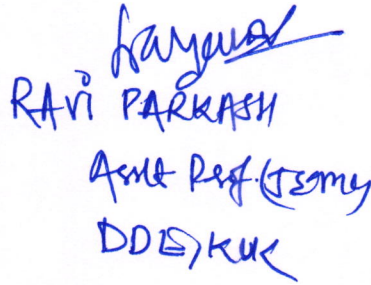 RAVI PARKASH
Asstt Prof.
DDE, KUK